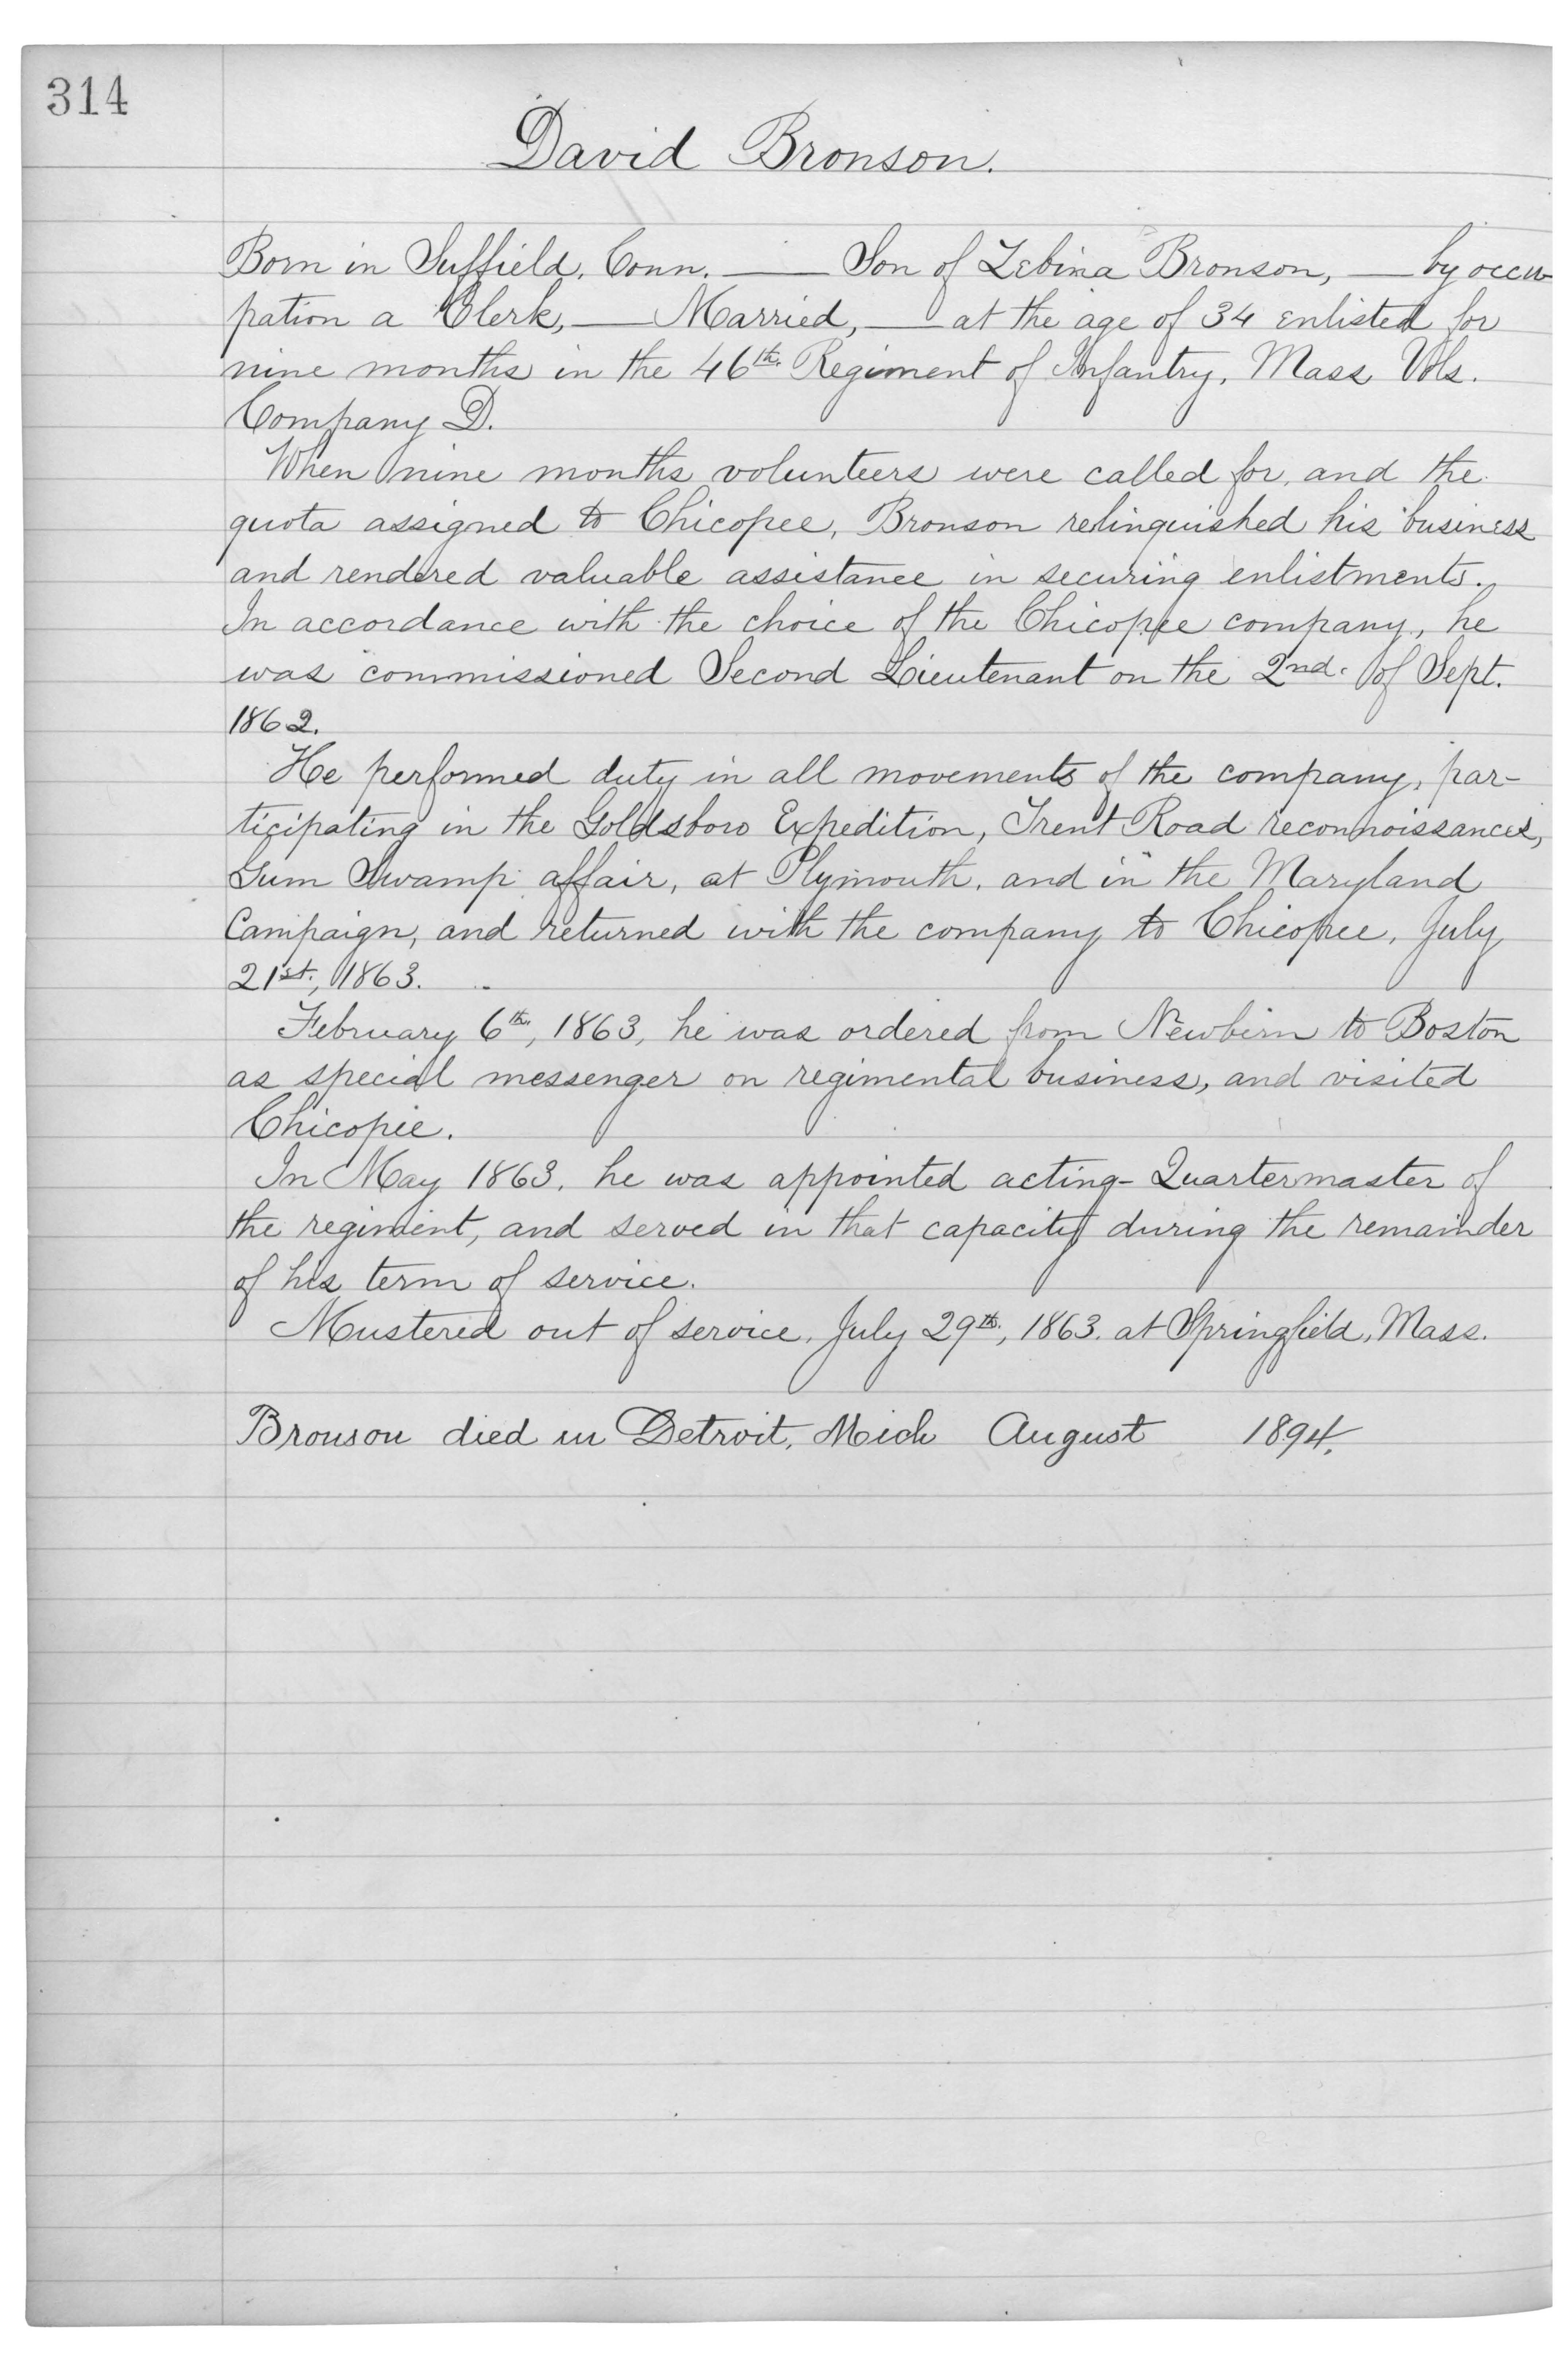 314
David Bronson.
Born in Suffield, Conn. — Son of Zebina Bronson, — by occu-
pation a Clerk, — Married, — at the age of 34 enlisted for
nine months in the 46th. Regiment of Infantry, Mass Vols.
Company D.
When nine months volunteers were called for, and the
quota assigned to Chicopee, Bronson relinquished his business
and rendered valuable assistance in securing enlistments.
In accordance with the choice of the Chicopee company, he
was commissioned Second Lieutenant on the 2nd. of Sept.
1862.
He performed duty in all movements of the company, par-
ticipating in the Goldsboro Expedition, Trent Road reconnoissances,
Gum Swamp affair, at Plymouth, and in the Maryland
Campaign, and returned with the company to Chicopee, July
21st., 1863.
February 6th, 1863, he was ordered from Newbern to Boston
as special messenger on regimental business, and visited
Chicopee.
In May 1863, he was appointed acting-Quartermaster of
the regiment, and served in that capacity during the remainder
of his term of service.
Mustered out of service, July 29th., 1863. at Springfield, Mass.
Bronson died in Detroit, Mich August 1894.